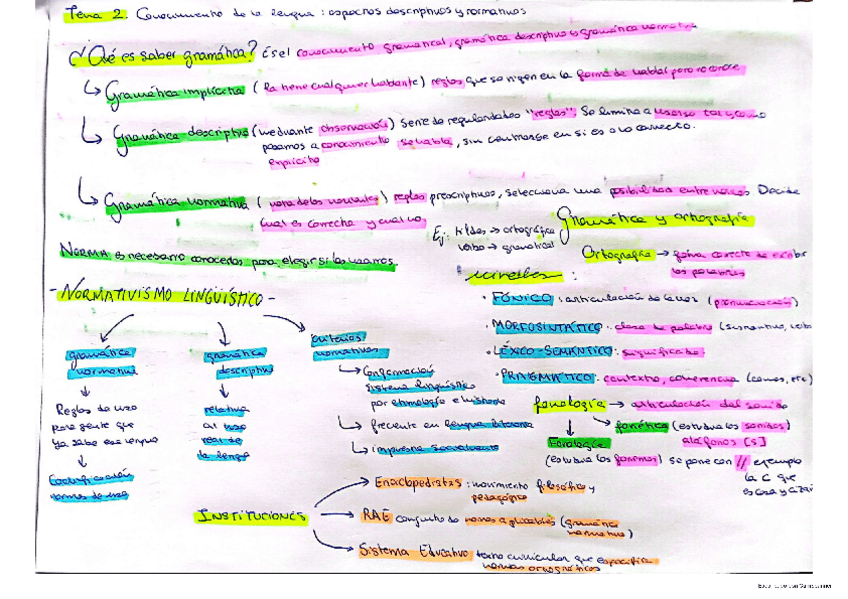 Tema 2. Conocimiento de la lengua: aspectos descriptivos y normativos
¿Qué es saber gramática? Es el conocimiento gramatical, gramática descriptiva o gramática normativa
↳ Gramática implícita (la tiene cualquier hablante) reglas que se rigen en la forma de hablar pero no
↳ Gramática descriptiva (mediante observación) Serie de regularidades "reglas". Se limita a
pasamos a conocimiento se habla, sin centrarse en si es o no correcto.
explícito
↳ Gramática normativa ( ) reglas prescriptivas, selecciona una posibilidad entre varias Decide
cual es correcta y cual no.
Ej: tildes → ortográfica
verbo → gramatical
Gramática y ortografía
Ortografía → forma correcta de escribir
las palabras
NORMA es necesario conocerlas para elegir si las usamos.
niveles:
· FÓNICO: articulación de la voz (pronunciación)
· MORFOSINTÁTICO: clase de palabra (sustantivo, verbo
· LÉXICO-SEMÁNTICO: significado
· PRAGMÁTICO: contexto, coherencia (comas, etc)
- NORMATIVISMO LINGÜÍSTICO -
gramática
normativa
↓
Reglas de uso
para gente que
ya sabe esa lengua
↓
Codificación
normas de uso
gramática
descriptiva
↓
relativa
al uso
real de
la lengua
criterios
normativos
↳ Conformación
sistema lingüístico
por etimología e historia
↳ frecuente en lengua literaria
↳ impuesta socialmente
fonología → articulación del sonido
↳ fonética (estudia los sonidos)
alófonos [s]
Fonología
(estudia los fonemas) se pone con // ejemplo
la c que
es casa y
INSTITUCIONES
Enciclopedistas: movimiento filosófico y
pedagógico
RAE conjunto de normas aplicables (gramática
normativa)
Sistema Educativo texto curricular que especifica
normas ortográficas